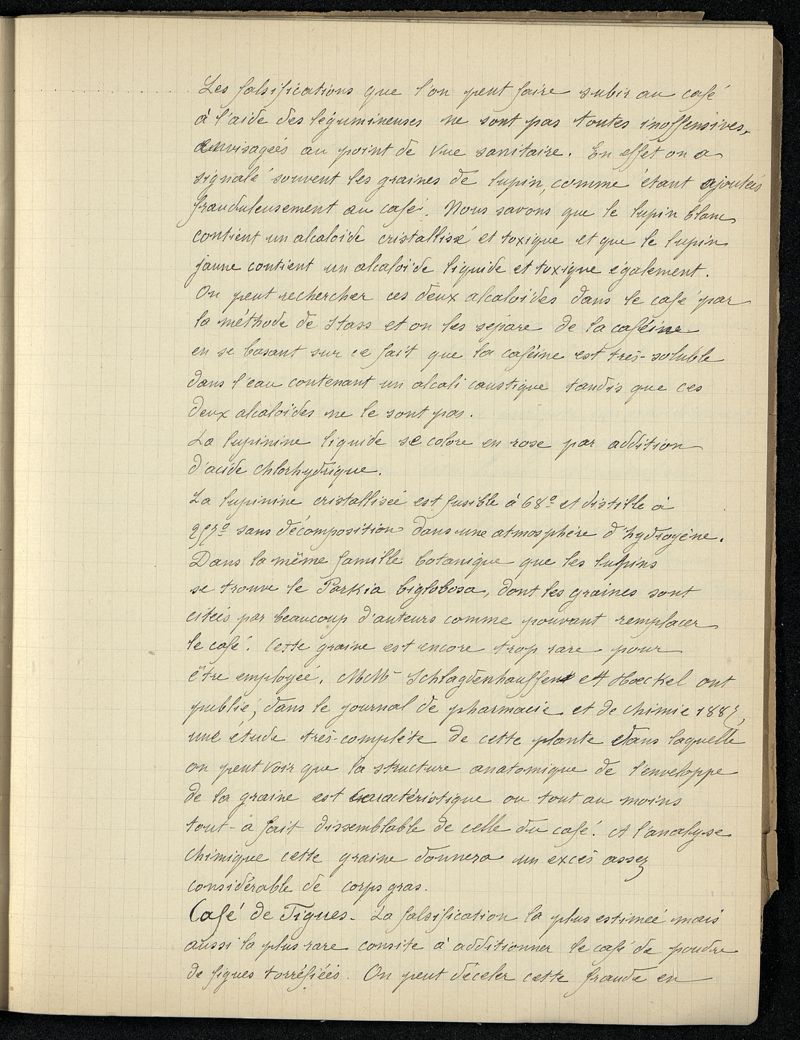 Les falsifications que l'on peut faire subir au café
à l'aide des légumineuses ne sont pas toutes inoffensives,
envisageés au point de vue sanitaire. En effet on a
signalé souvent les graines de lupin, comme étant ajoutées
frauduleusement au café. Nous savons que le lupin blanc
contient un alcaloïde cristallisé et toxique et que le lupin
jaune contient un alcaloïde liquide et toxique également.
On peut rechercher ces deux alcaloïdes dans le café par
la méthode de Stass et on les sépare de la caféine
en se basant sur ce fait que la caféine est très-soluble
dans l'eau contenant un alcali caustique tandis que ces
deux alcaloïdes ne le sont pas.
La lupinine liquide se colore en rose par addition
d'acide chlorhydrique.
La lupinine cristallisée est fusible à 68° et distille à
sans décomposition dans une atmosphère d'hydrogène.
Dans la même famille botanique que les lupins
se trouve le Parkia biglobosa, dont les graines sont
citées par beaucoup d'auteurs comme pouvant remplacer
le café. Cette graine est encore trop rare pour
être employée. MMrs Schlagdenhauffen et Hoeckel ont
publié, dans le journal de pharmacie et de chimie
une étude très-complète de cette plante dans laquelle
on peut voir que la structure anatomique de l'enveloppe
de la graine est caractéristique ou tout au moins
tout-à fait dissemblable de celle du café. A l'analyse
chimique cette graine donnera un excès assez
considérable de corps gras.
Café de Figues. La falsification la plus estimée mais
aussi la plus rare consite à additionner le café de poudre
de figues torréfiées. On peut déceler cette fraude en